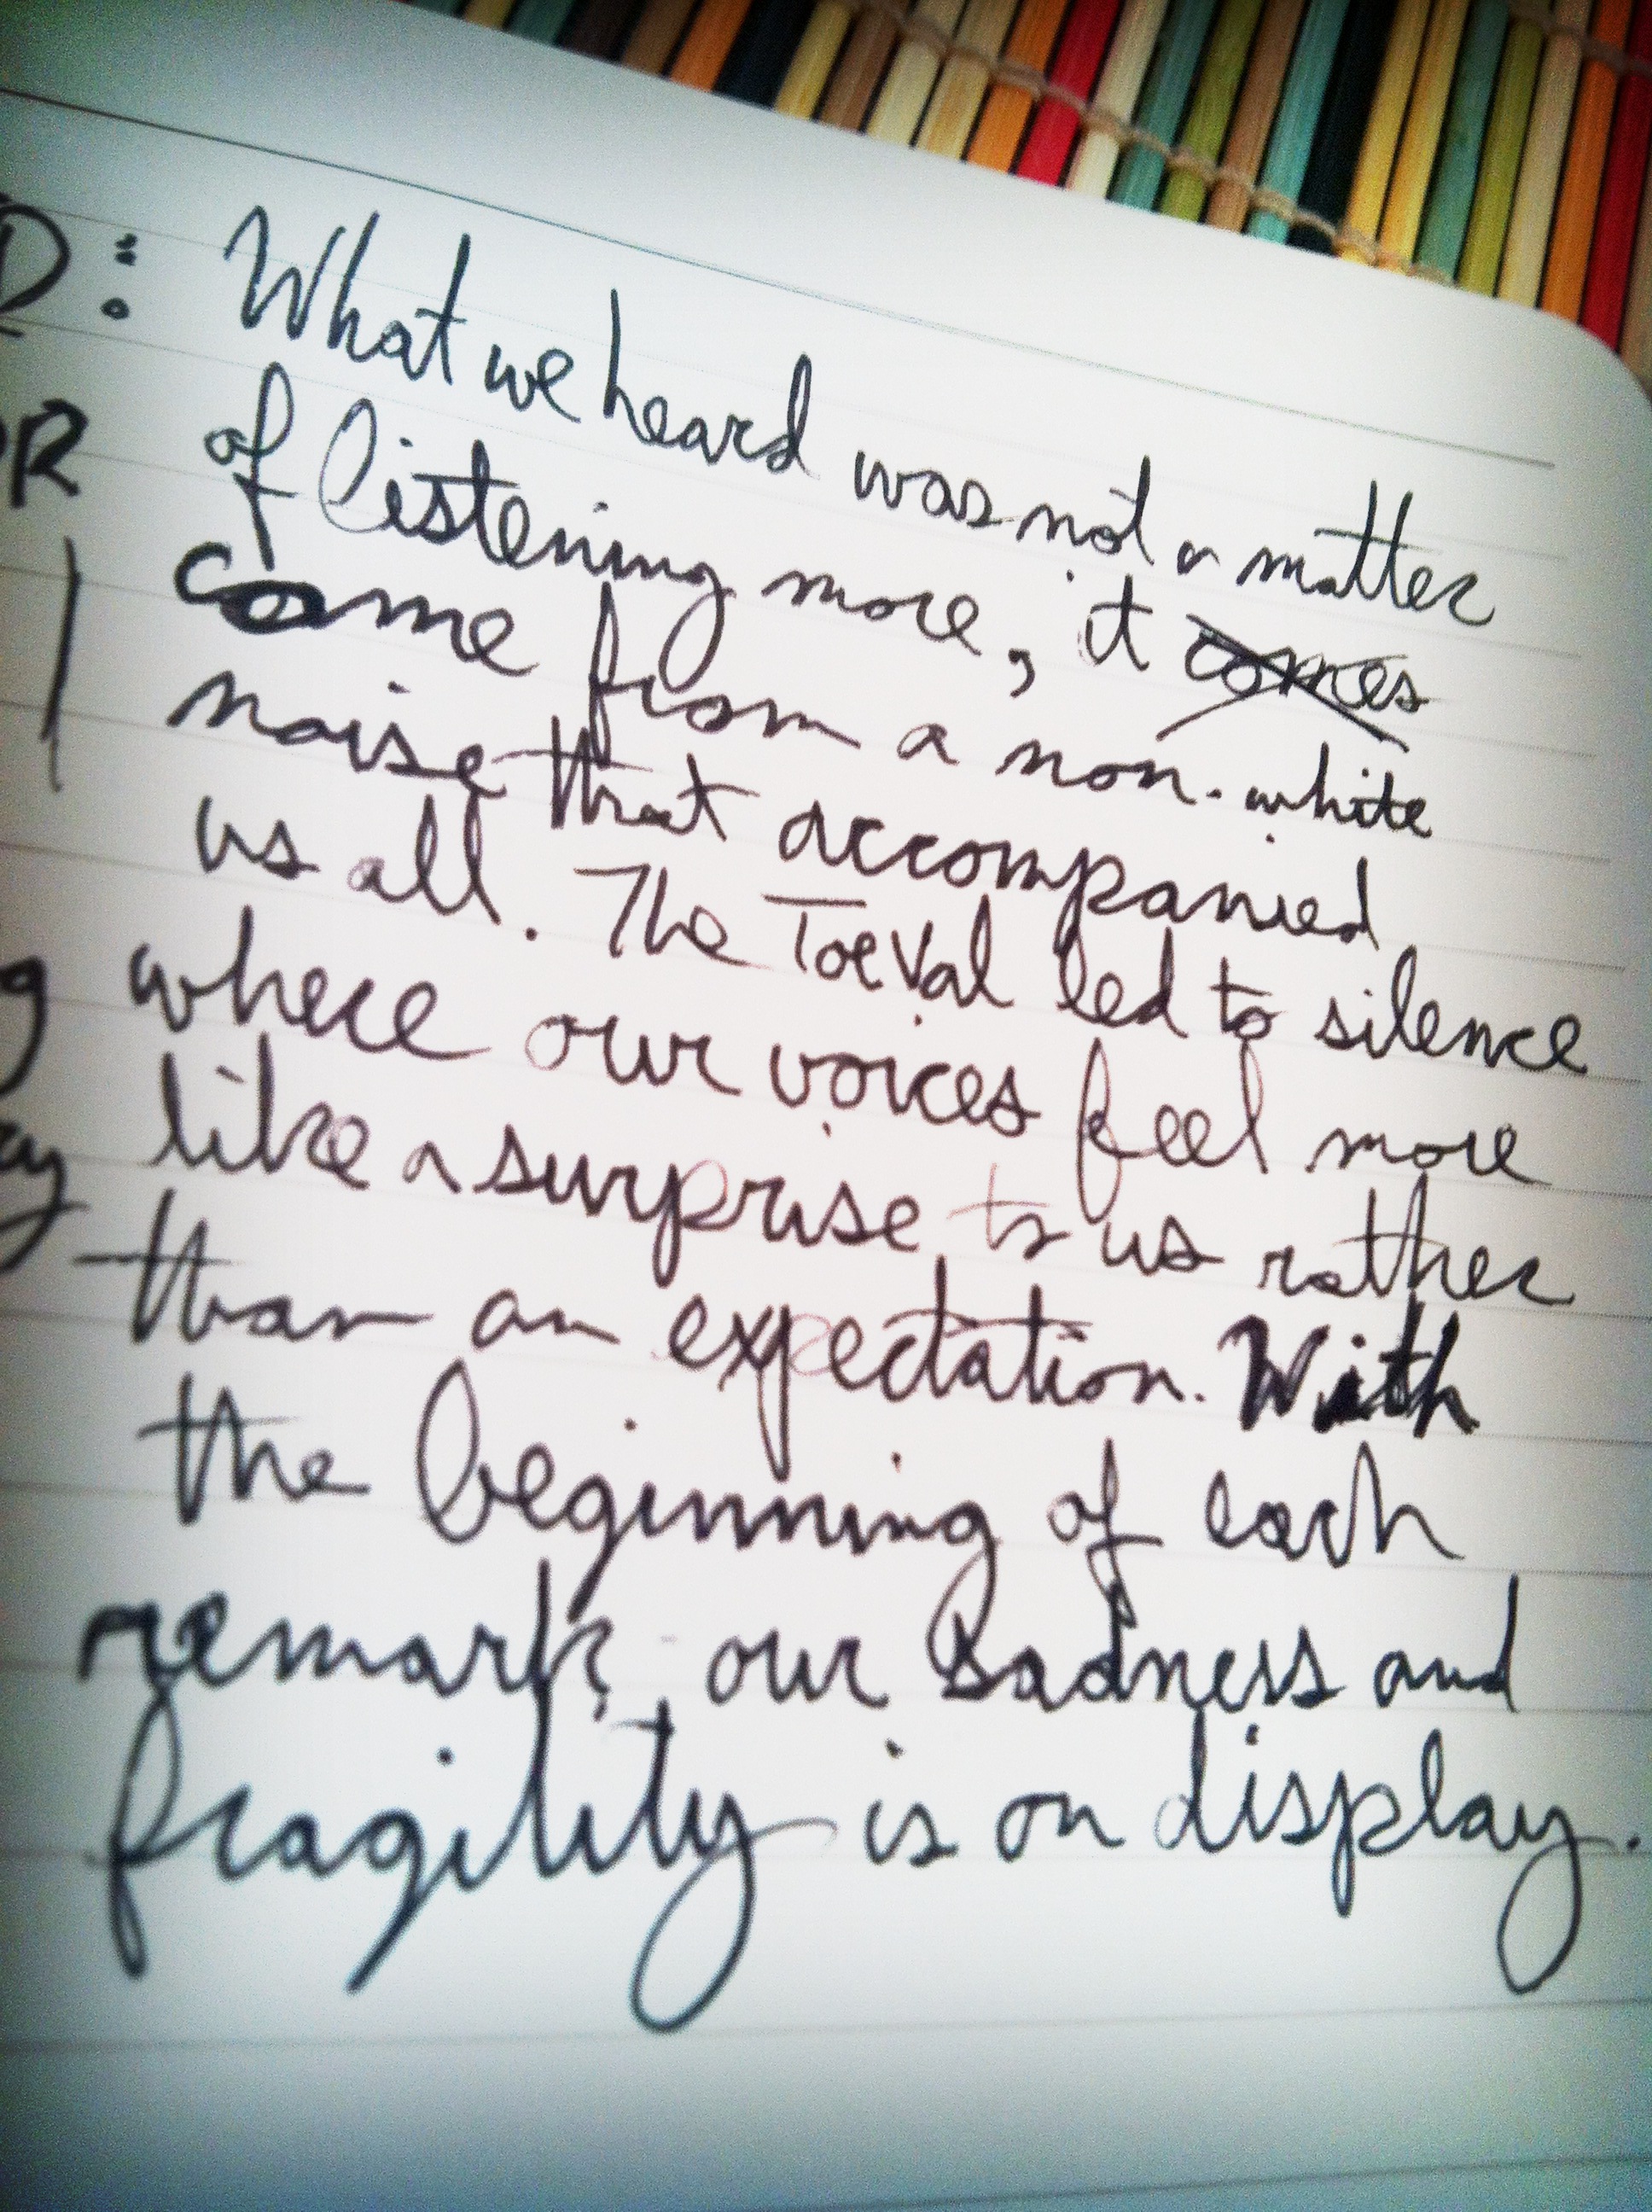 D: What we heard was not a matter
OR of listening more, it comes
came from a non-white
noise that accompanied
us all. The ToeVal led to silence
g where our voices feel more
ay like a surprise to us rather
than an expectation. With
the beginning of each
remark, our sadness and
fragility is on display.